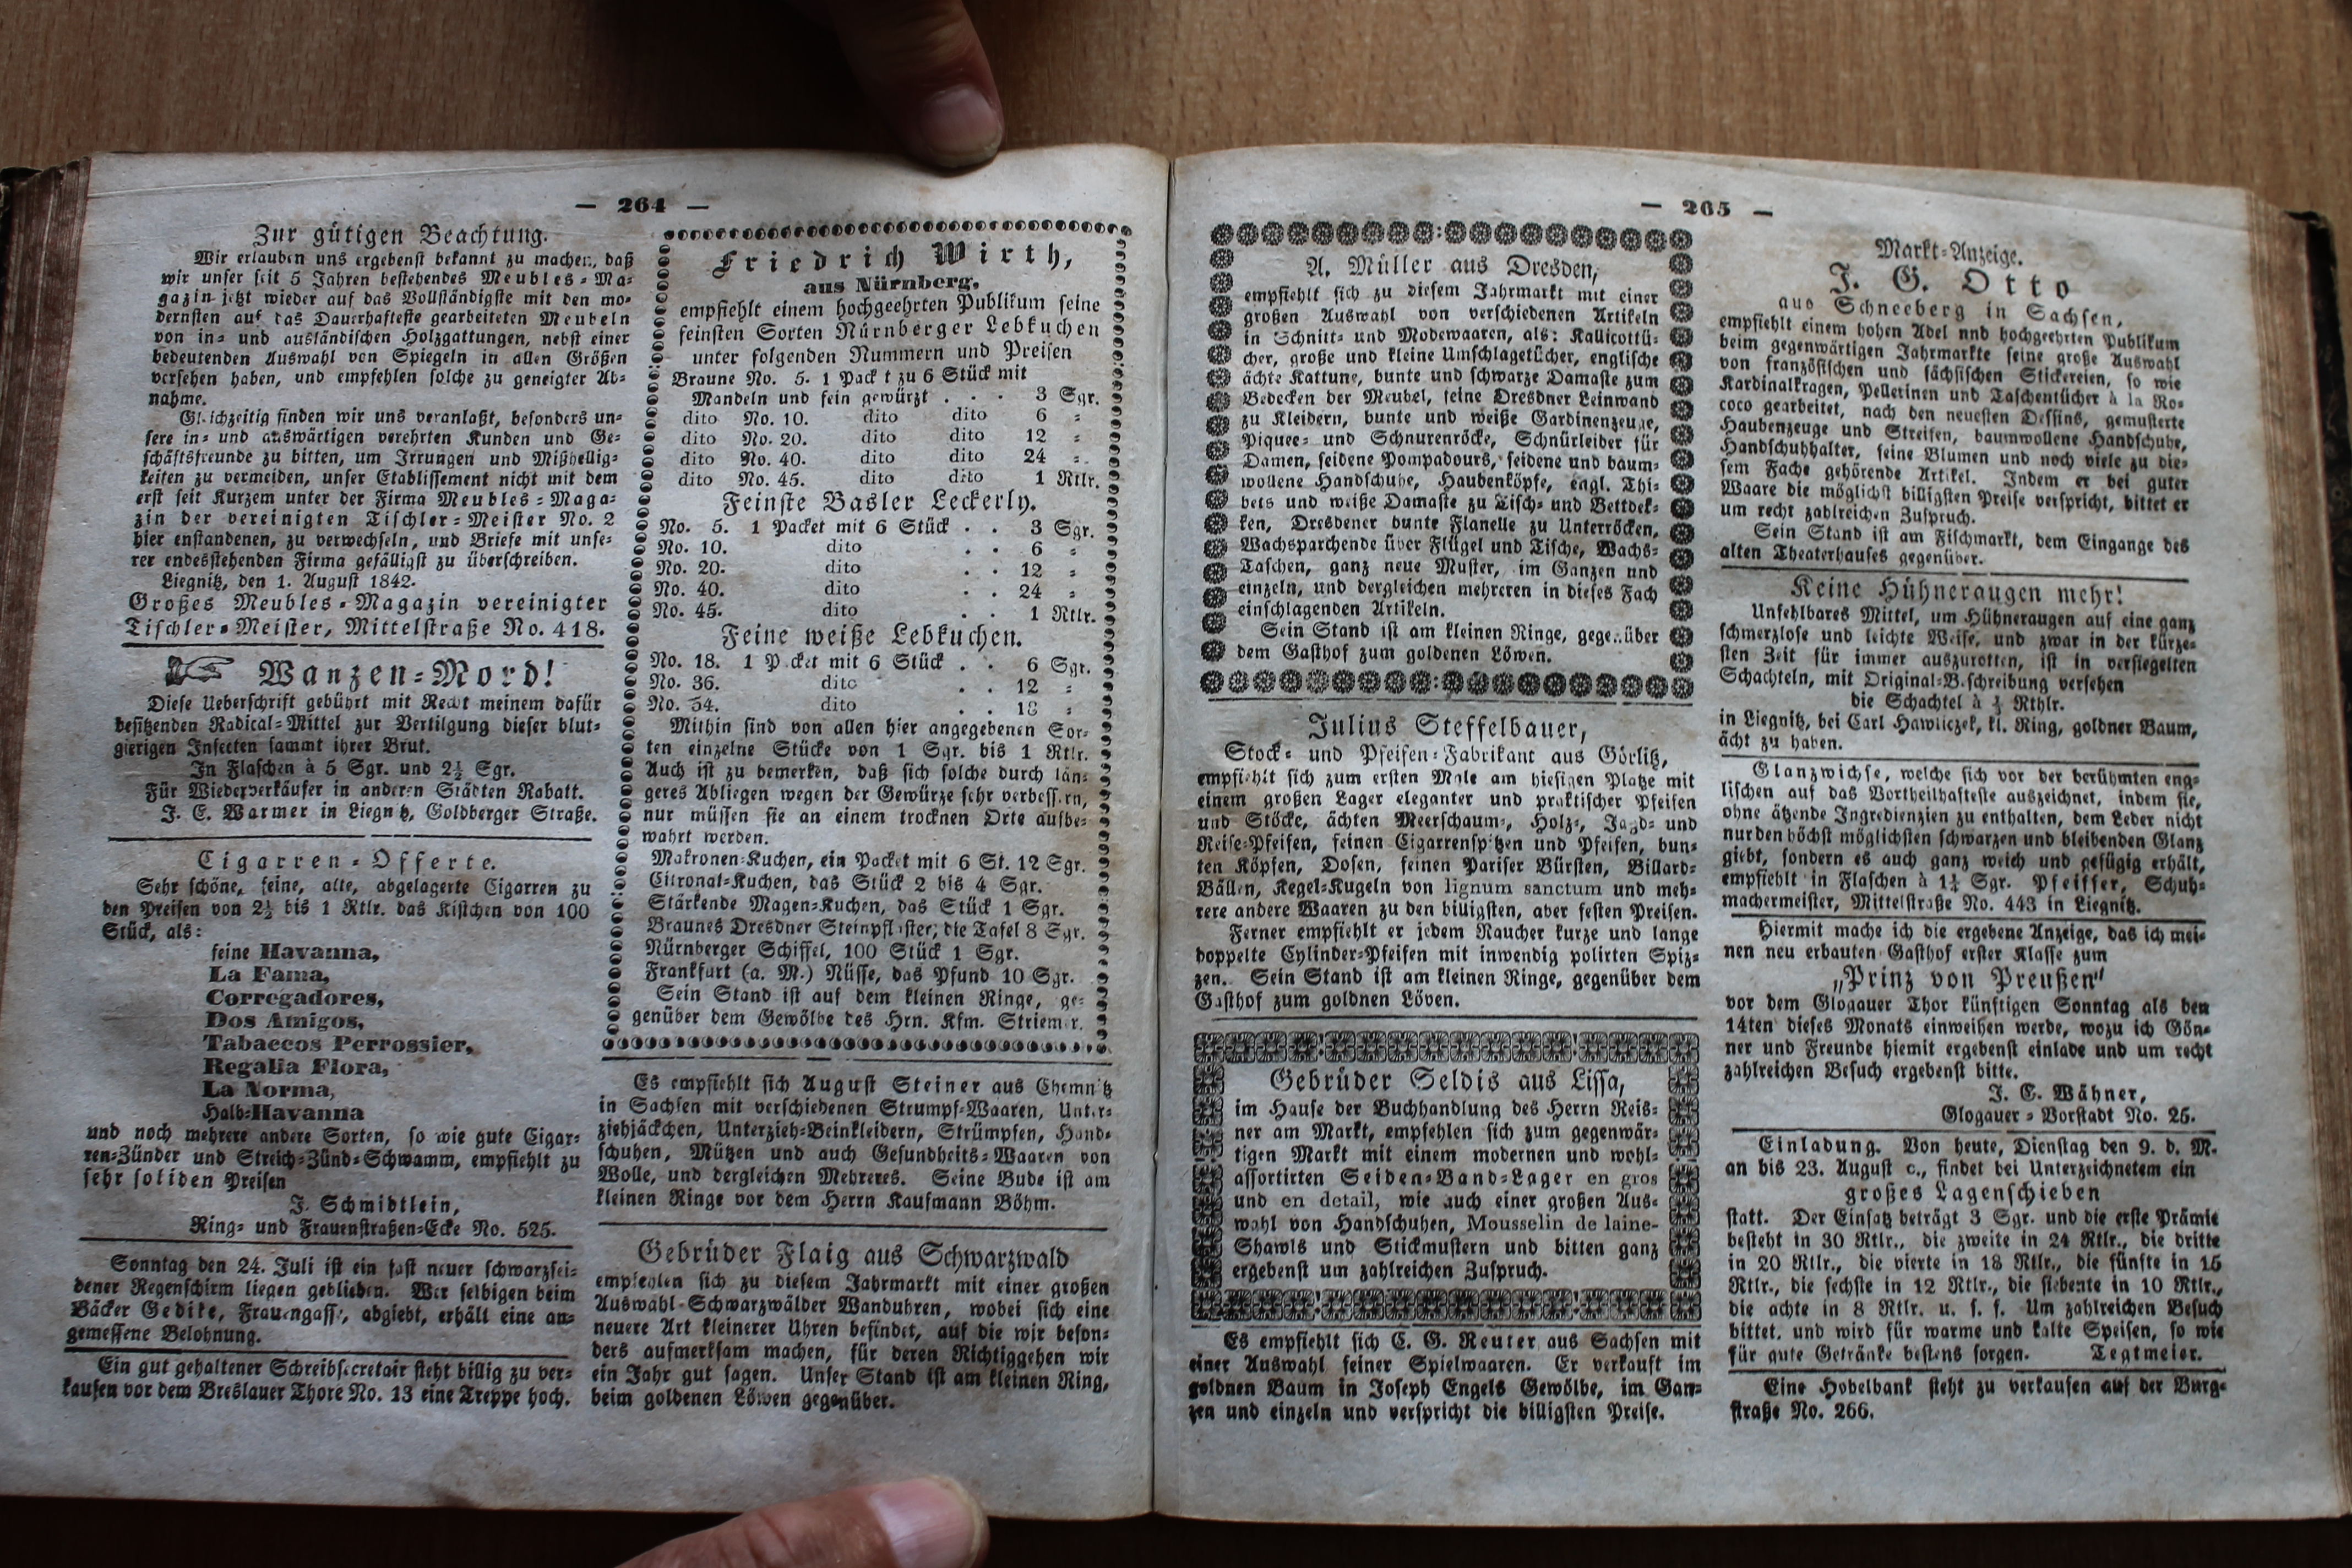 — 264 —
Zur gütigen Beachtung.
Wir erlauben uns ergebenst bekannt zu machen, daß
wir unser seit 5 Jahren bestehendes Meubles-Ma-
gazin jetzt wieder auf das Vollständigste mit den mo-
dernsten auf das Dauerhafteste gearbeiteten Meubeln
von in- und ausländischen Holzgattungen, nebst einer
bedeutenden Auswahl von Spiegeln in allen Größen
versehen haben, und empfehlen solche zu geneigter Ab-
nahme.
Gleichzeitig finden wir uns veranlaßt, besonders un-
sere in- und auswärtigen verehrten Kunden und Ge-
schäftsfreunde zu bitten, um Irrungen und Mißhellig-
keiten zu vermeiden, unser Etablissement nicht mit dem
erst seit Kurzem unter der Firma Meubles-Maga-
zin der vereinigten Tischler-Meister No. 2
hier enstandenen, zu verwechseln, und Briefe mit unse-
rer endesstehenden Firma gefälligst zu überschreiben.
Liegnitz, den 1. August 1842.
Großes Meubles-Magazin vereinigter
Tischler-Meister, Mittelstraße No. 418.
Wanzen-Mord!
Diese Ueberschrift gebührt mit Recht meinem dafür
besitzenden Radical-Mittel zur Vertilgung dieser blut-
gierigen Insecten sammt ihrer Brut.
In Flaschen à 5 Sgr. und 2½ Sgr.
Für Wiederverkäufer in anderen Städten Rabatt.
J. E. Warmer in Liegnitz, Goldberger Straße.
Cigarren-Offerte.
Sehr schöne, feine, alte, abgelagerte Cigarren zu
den Preisen von 2½ bis 1 Rtlr. das Kistchen von 100
Stück, als:
feine Havanna,
La Fama,
Corregadores,
Dos Amigos,
Tabaecos Perrossier,
Regalia Flora,
La Norma,
Halb-Havanna
und noch mehrere andere Sorten, so wie gute Cigar-
ren-Zünder und Streich-Zünd-Schwamm, empfiehlt zu
sehr soliden Preisen
J. Schmidtlein,
Ring- und Frauenstraßen-Ecke No. 525.
Sonntag den 24. Juli ist ein fast neuer schwarzsei-
dener Regenschirm liegen geblieben. Wer selbigen beim
Bäcker Gedike, Frauengasse, abgiebt, erhält eine an-
gemessene Belohnung.
Ein gut gehaltener Schreibsecretair steht billig zu ver-
kaufen vor dem Breslauer Thore No. 13 eine Treppe hoch.
Friedrich Wirth,
aus Nürnberg,
empfiehlt einem hochgeehrten Publikum seine
feinsten Sorten Nürnberger Lebkuchen
unter folgenden Nummern und Preisen
Braune No. 5. 1 Packt zu 6 Stück mit
Mandeln und fein gewürzt . . . 3 Sgr.
dito No. 10. dito dito 6 -
dito No. 20. dito dito 12 -
dito No. 40. dito dito 24 -
dito No. 45. dito dito 1 Rtlr.
Feinste Basler Leckerly.
No. 5. 1 Packet mit 6 Stück . . 3 Sgr.
No. 10. dito . . 6 -
No. 20. dito . . 12 -
No. 40. dito . . 24 -
No. 45. dito . . 1 Rtlr.
Feine weiße Lebkuchen.
No. 18. 1 Packet mit 6 Stück . . 6 Sgr.
No. 36. dito . . 12 -
No. 54. dito . . 18 -
Mithin sind von allen hier angegebenen Sor-
ten einzelne Stücke von 1 Sgr. bis 1 Rtlr.
Auch ist zu bemerken, daß sich solche durch län-
geres Abliegen wegen der Gewürze sehr verbessern,
nur müssen sie an einem trocknen Orte aufbe-
wahrt werden.
Makronen-Kuchen, ein Packet mit 6 St. 12 Sgr.
Citronat-Kuchen, das Stück 2 bis 4 Sgr.
Stärkende Magen-Kuchen, das Stück 1 Sgr.
Braunes Dresdner Steinpflaster, die Tafel 8 Sgr.
Nürnberger Schiffel, 100 Stück 1 Sgr.
Frankfurt (a. M.) Nüsse, das Pfund 10 Sgr.
Sein Stand ist auf dem kleinen Ringe, ge-
genüber dem Gewölbe des Hrn. Kfm. Striemer.
Es empfiehlt sich August Steiner aus Chemnitz
in Sachsen mit verschiedenen Strumpf-Waaren, Unter-
ziehjäckchen, Unterzieh-Beinkleidern, Strümpfen, Hand-
schuhen, Mützen und auch Gesundheits-Waaren von
Wolle, und dergleichen Mehreres. Seine Bude ist am
kleinen Ringe vor dem Herrn Kaufmann Böhm.
Gebrüder Flaig aus Schwarzwald
empfehlen sich zu diesem Jahrmarkt mit einer großen
Auswahl Schwarzwälder Wanduhren, wobei sich eine
neuere Art kleinerer Uhren befindet, auf die wir beson-
ders aufmerksam machen, für deren Richtiggehen wir
ein Jahr gut sagen. Unser Stand ist am kleinen Ring,
beim goldenen Löwen gegenüber.
— 265 —
A. Müller aus Dresden,
empfiehlt sich zu diesem Jahrmarkt mit einer
großen Auswahl von verschiedenen Artikeln
in Schnitt- und Modewaaren, als: Kallicottü-
cher, große und kleine Umschlagetücher, englische
ächte Kattune, bunte und schwarze Damaste zum
Bedecken der Meubel, feine Dresdner Leinwand
zu Kleidern, bunte und weiße Gardinenzeuge,
Piquee- und Schnurenröcke, Schnürleider für
Damen, seidene Pompadours, seidene und baum-
wollene Handschuhe, Haubenköpfe, engl. Thi-
bets und weiße Damaste zu Tisch- und Bettdek-
ken, Dresdener bunte Flanelle zu Unterröcken,
Wachsparchende über Flügel und Tische, Wachs-
Taschen, ganz neue Muster, im Ganzen und
einzeln, und dergleichen mehreren in dieses Fach
einschlagenden Artikeln.
Sein Stand ist am kleinen Ringe, gegenüber
dem Gasthof zum goldenen Löwen.
Julius Steffelbauer,
Stock- und Pfeifen-Fabrikant aus Görlitz,
empfiehlt sich zum ersten Male am hiesigen Platze mit
einem großen Lager eleganter und praktischer Pfeifen
und Stöcke, ächten Meerschaum-, Holz-, Jagd- und
Reise-Pfeifen, feinen Cigarrenspitzen und Pfeifen, bun-
ten Köpfen, Dosen, feinen Pariser Bürsten, Billard-
Bällen, Kegel-Kugeln von lignum sanctum und meh-
rere andere Waaren zu den billigsten, aber festen Preisen.
Ferner empfiehlt er jedem Raucher kurze und lange
doppelte Cylinder-Pfeifen mit inwendig polirten Spiz-
zen. Sein Stand ist am kleinen Ringe, gegenüber dem
Gasthof zum goldnen Löven.
Gebrüder Seldis aus Lissa,
im Hause der Buchhandlung des Herrn Reis-
ner am Markt, empfehlen sich zum gegenwär-
tigen Markt mit einem modernen und wohl-
assortirten Seiden-Band-Lager en gros
und en detail, wie auch einer großen Aus-
wahl von Handschuhen, Mousselin de laine-
Shawls und Stickmustern und bitten ganz
ergebenst um zahlreichen Zuspruch.
Es empfiehlt sich C. G. Reuter aus Sachsen mit
einer Auswahl feiner Spielwaaren. Er verkauft im
goldnen Baum in Joseph Engels Gewölbe, im Gan-
zen und einzeln und verspricht die billigsten Preise.
Markt-Anzeige.
J. G. Otto
aus Schneeberg in Sachsen,
empfiehlt einem hohen Adel nnd hochgeehrten Publikum
beim gegenwärtigen Jahrmarkte seine große Auswahl
von französischen und sächsischen Stickereien, so wie
Kardinalkragen, Pellerinen und Taschentücher à la Ro-
coco gearbeitet, nach den neuesten Dessins, gemusterte
Haubenzeuge und Streifen, baumwollene Handschuhe,
Handschuhhalter, feine Blumen und noch viele zu die-
sem Fache gehörende Artikel. Indem er bei guter
Waare die möglichst billigsten Preise verspricht, bittet er
um recht zahlreichen Zuspruch.
Sein Stand ist am Fischmarkt, dem Eingange des
alten Theaterhauses gegenüber.
Keine Hühneraugen mehr!
Unfehlbares Mittel, um Hühneraugen auf eine ganz
schmerzlose und leichte Weise, und zwar in der kürze-
sten Zeit für immer auszurotten, ist in versiegelten
Schachteln, mit Original-Beschreibung versehen
die Schachtel à Rthlr.
in Liegnitz, bei Carl Hawliczek, kl. Ring, goldner Baum,
ächt zu haben.
Glanzwichse, welche sich vor der berühmten eng-
lischen auf das Vortheilhafteste auszeichnet, indem sie,
ohne ätzende Ingredienzien zu enthalten, dem Leder nicht
nur den höchst möglichsten schwarzen und bleibenden Glanz
giebt, sondern es auch ganz weich und gefügig erhält,
empfiehlt in Flaschen à 1½ Sgr. Pfeiffer, Schuh-
machermeister, Mittelstraße No. 443 in Liegnitz.
Hiermit mache ich die ergebene Anzeige, das ich mei-
nen neu erbauten Gasthof erster Klasse zum
„Prinz von Preußen"
vor dem Glogauer Thor künftigen Sonntag als den
14ten dieses Monats einweihen werde, wozu ich Gön-
ner und Freunde hiemit ergebenst einlade und um recht
zahlreichen Besuch ergebenst bitte.
J. E. Wähner,
Glogauer-Vorstadt No. 25.
Einladung. Von heute, Dienstag den 9. d. M.
an bis 23. August c., findet bei Unterzeichnetem ein
großes Lagenschieben
statt. Der Einsatz beträgt 3 Sgr. und die erste Prämie
besteht in 30 Rtlr., die zweite in 24 Rtlr., die dritte
in 20 Rtlr., die vierte in 18 Rtlr., die fünfte in 15
Rtlr., die sechste in 12 Rtlr., die siebente in 10 Rtlr.,
die achte in 8 Rtlr. u. s. f. Um zahlreichen Besuch
bittet, und wird für warme und kalte Speisen, so wie
für gute Getränke bestens sorgen. Tegtmeier.
Eine Hobelbank steht zu verkaufen auf der Burg-
straße No. 266.